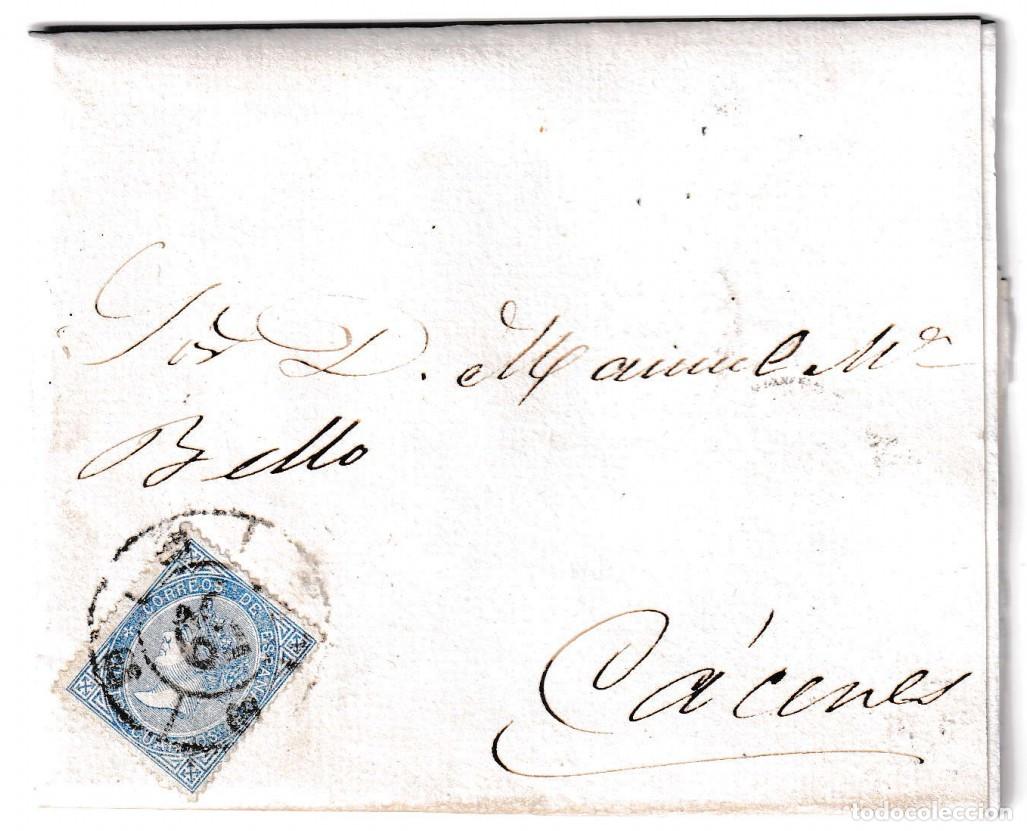 Sor D. Manuel Mª
Bello
CORREOS DE ESPAÑA
Cáceres
todocoleccion